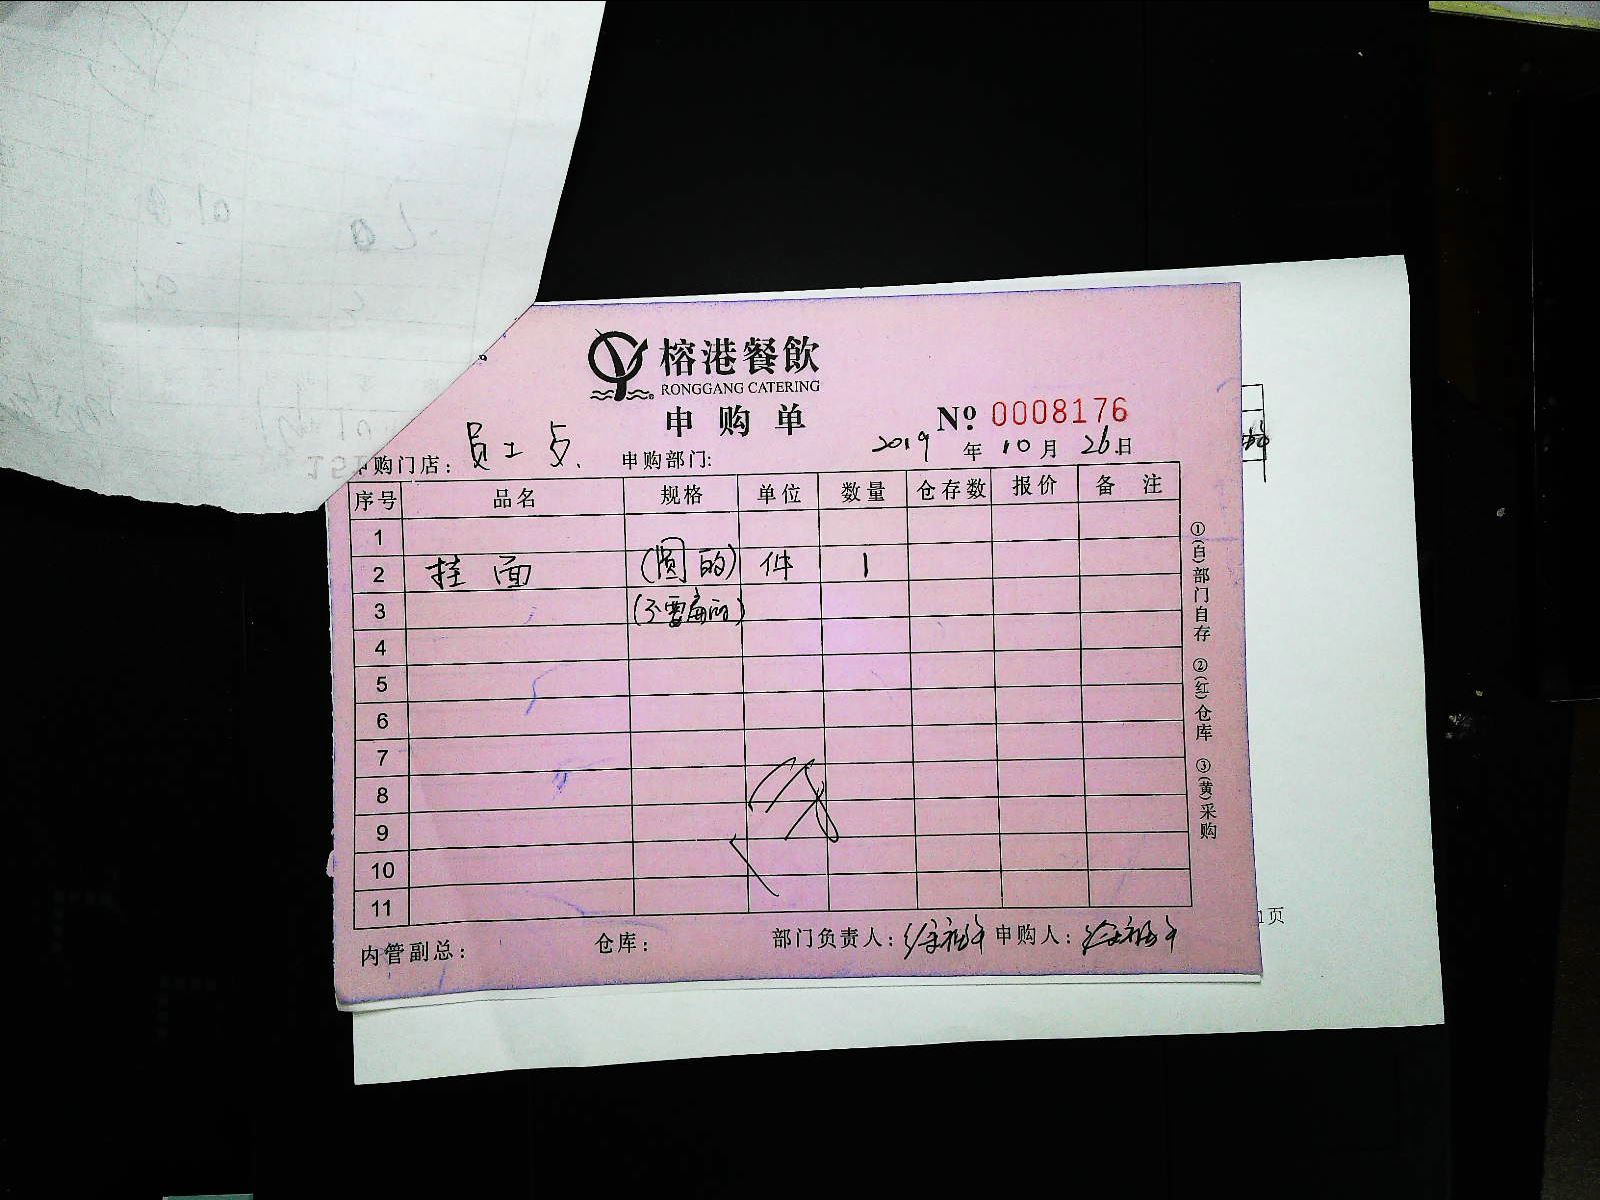 榕港餐飲
RONGGANG CATERING
申购单
№ 0008176
申购门店：员工 申购部门: 2019年10月26日
序号 品名 规格 单位 数量 仓存数 报价 备注
1
2 挂面 (圆的) 件 1
3 (不要扁的)
4
5
6
7
8
9
10
11
①(白)部门自存 ②(红)仓库 ③(黄)采购
内管副总： 仓库： 部门负责人： 申购人：
1页